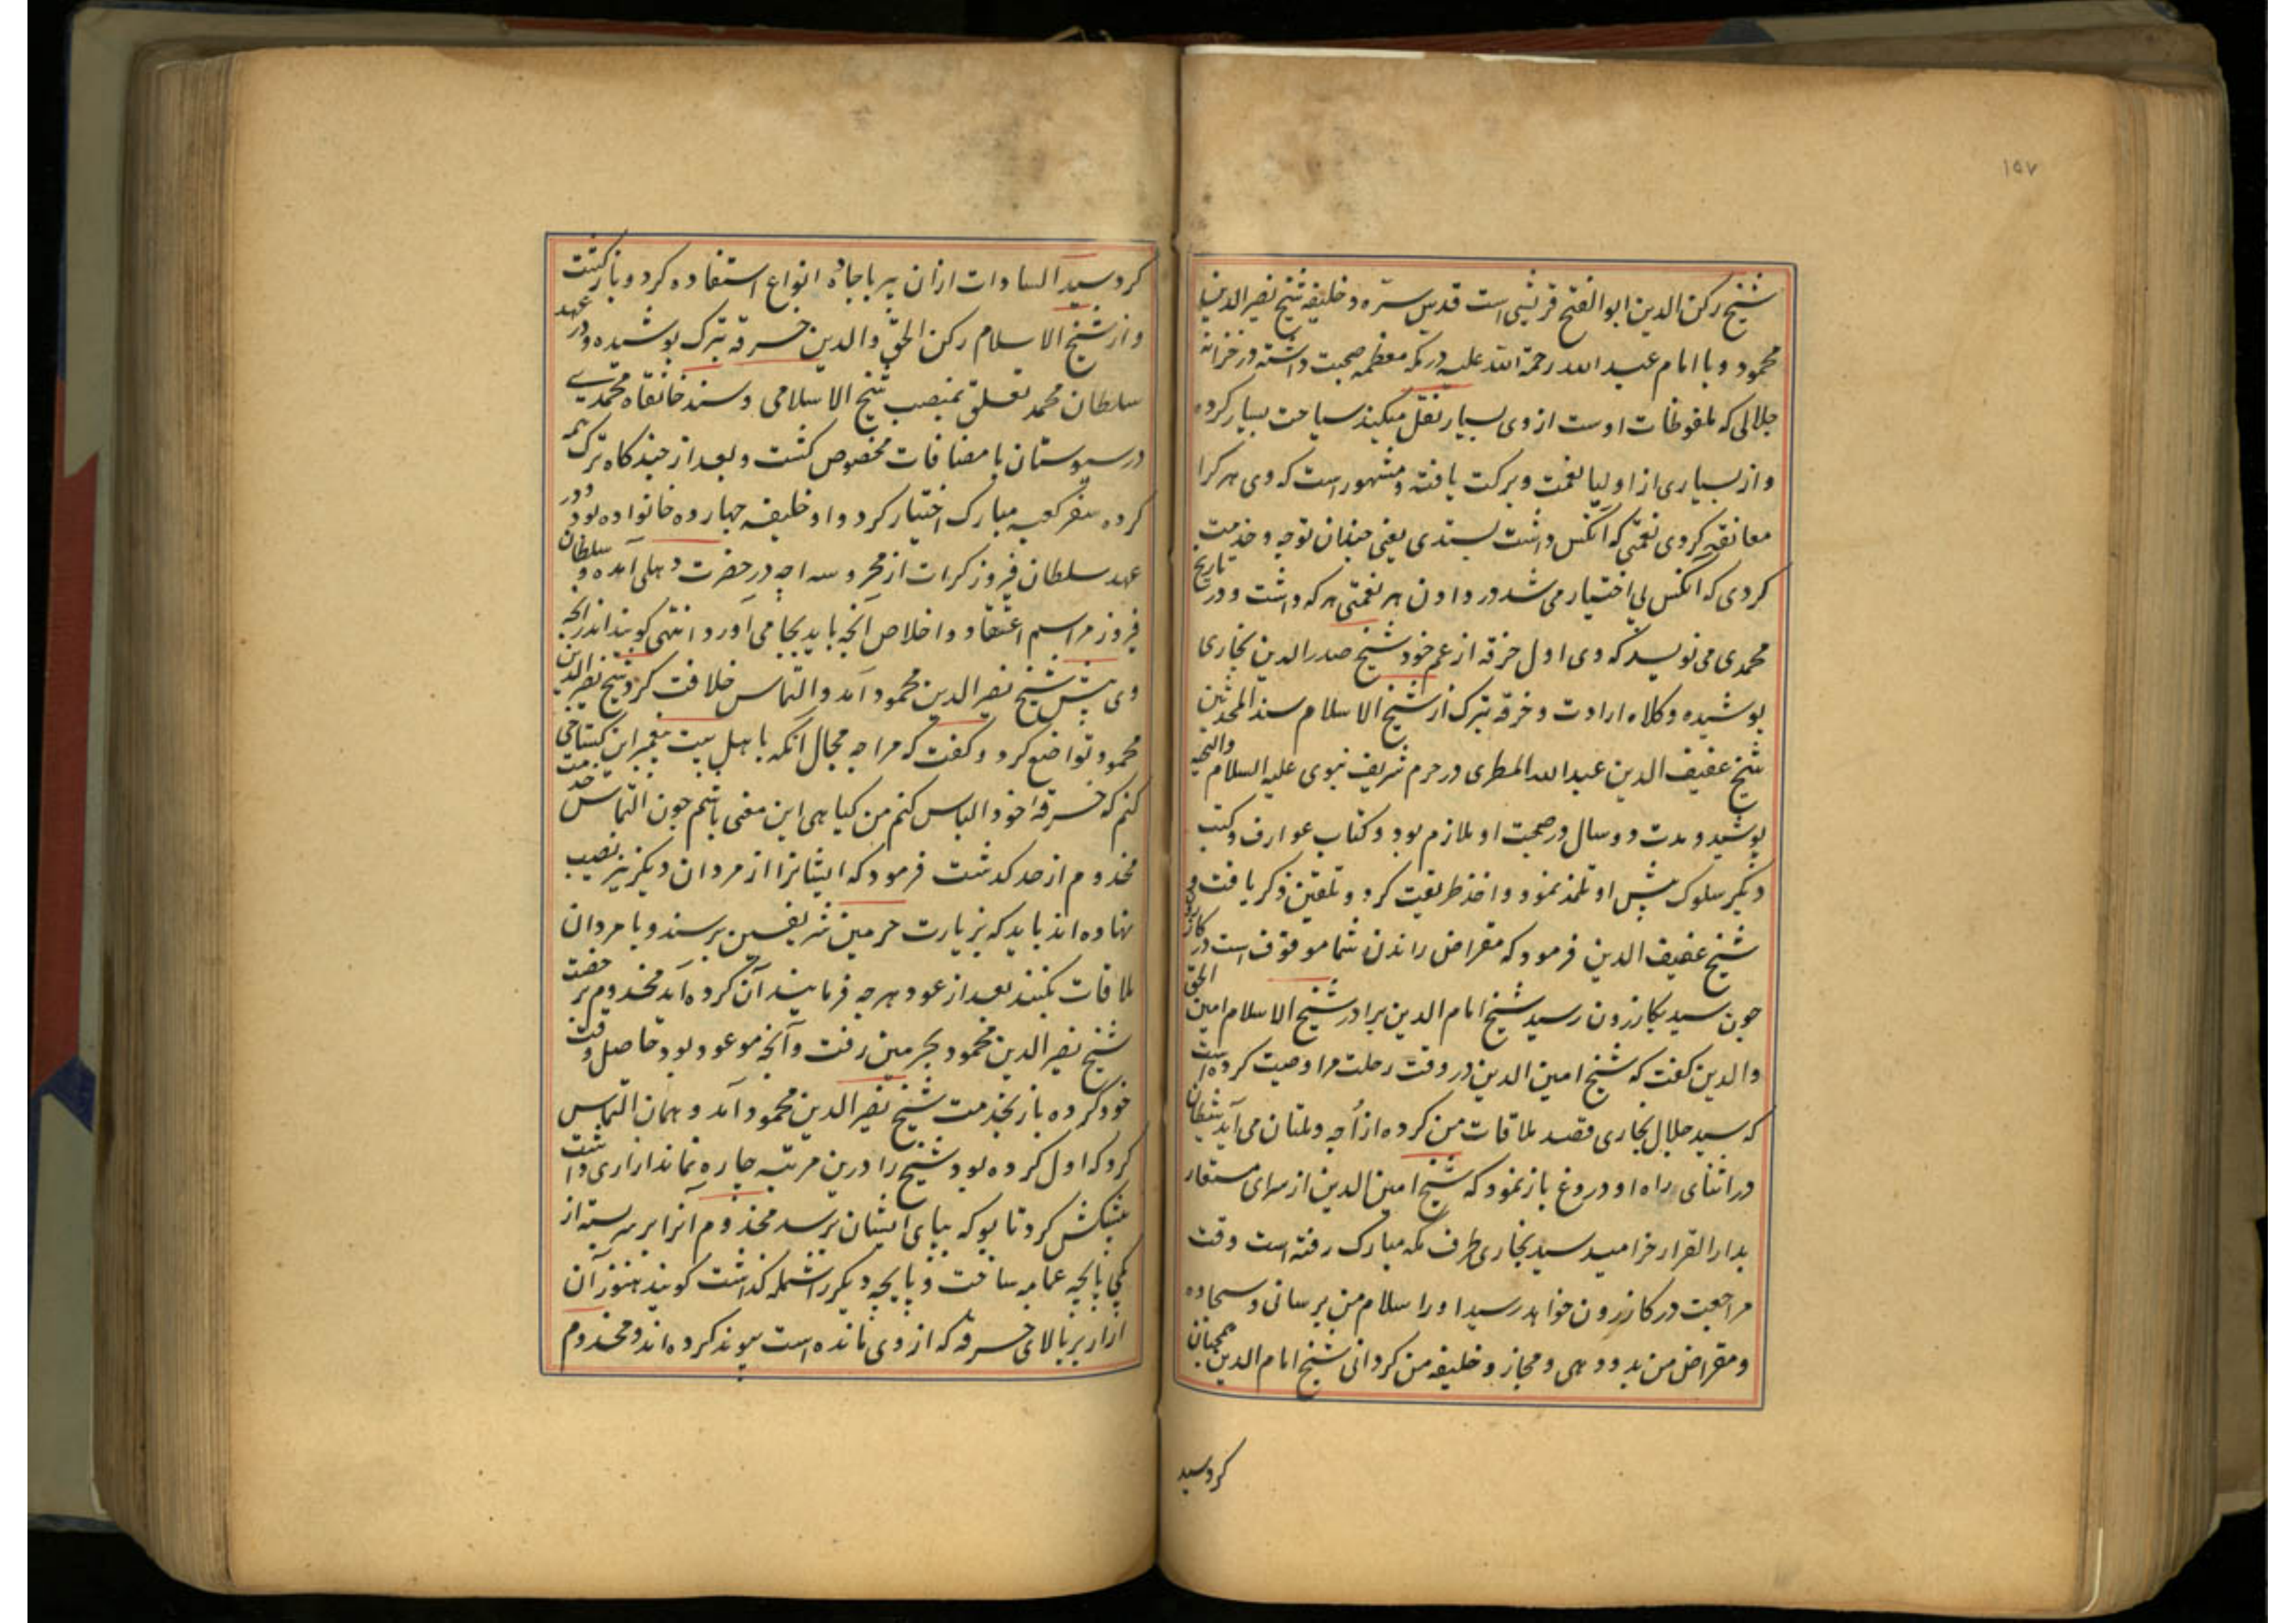 ١٥٧
شیخ رکن الدین ابو الفتح قریشی است قدس سره و خلیفه شیخ نصیر الدین
محمود و با امام عبد الله رحمة الله علیه در مکه معظمه صحبت داشته در خزانه
جلالی که ملفوظات اوست از وی بسیار نقل میکند سیاحت بسیار کرده
و از بسیاری از اولیا نعمت و برکت یافته و مشهور است که وی هر کرا
معانقه کردی نعمتی که آنکس داشت بستدی یعنی چندان توجه و خدمت
کردی که آنکس بی اختیار می شد در دادن هر نعمتی هر که داشت و در تاریخ
محمدی می نویسد که وی اول خرقه از عم خود شیخ صدر الدین بخاری
پوشیده و کلاه ارادت و خرقه تبرک از شیخ الاسلام سند المحدثین
شیخ عفیف الدین عبد الله المطری در حرم شریف نبوی علیه السلام والتحیه
پوشید و مدت دو سال در صحبت او ملازم بود و کتاب عوارف و کتب
دیگر سلوک پیش او تلمذ نمود و اخذ طریقت کرد و تلقین ذکر یافت و
شیخ عفیف الدین فرمود که مقراض راندن شما موقوف است در کازرون
چون سید بکازرون رسید شیخ امام الدین برادر شیخ الاسلام امین الحق
والدین کفت که شیخ امین الدین در وقت رحلت مرا وصیت کرده است
که سید جلال بخاری قصد ملاقات من کرده از اُچه و ملتان می آید شیطان
در اثنای راه او دروغ باز نمود که شیخ امین الدین از سرای مستعار
بدار القرار خرامید سید بخاری طرف مکه مبارک رفته است وقت
مراجعت در کازرون خواهد رسید او را سلام من برسانی و سجاده
و مقراض من بدو دهی و مجاز و خلیفه من کردانی شیخ امام الدین همچنان
کرد سید
کرد سید السادات ازان پیر با جاده انواع استفاده کرد و باز کشت
و از شیخ الاسلام رکن الحق والدین خرقه تبرک پوشیده و در عهد
سلطان محمد تغلق بمنصب شیخ الاسلامی و سند خانقاه محمدی
در سیوستان با مضافات مخصوص کشت و بعد از چند کاه ترک همه
کرده سفر کعبه مبارک اختیار کرد و او خلیفه چهارده خانواده بود و در
عهد سلطان فیروز کرات از محروسه اچه در حضرت دهلی آمده و سلطان
فیروز مراسم اعتقاد و اخلاص آنچه باید بجا می آورد انتهی کویند اندر آنچه
وی پیش شیخ نصیر الدین محمود آمد و التماس خلافت کرد شیخ نصیر الدین
محمود تواضع کرد و کفت که مرا چه مجال آنکه باهل بیت پیغمبر این کستاخی
کنم که خرقه خود الباس کنم من کیاهی این معنی باشم چون التماس خدمت
مخدوم از حد کذشت فرمود که ایشانرا از مردان دیکر نیز نصیب
نهاده اند باید که بزیارت حرمین شریفین برسند و با مردان
ملاقات بکنند بعد از عود هر چه فرمایند آن کرده آید مخدوم بر خصت
شیخ نصیر الدین محمود بحرمین رفت و آنچه موعود بود حاصل وقت
خود کرده باز بخدمت شیخ نصیر الدین محمود آمد و همان التماس
کرد که اول کرده بود شیخ را درین مرتبه چاره نماند ازاری داشت
پیشکش کرد تا بو که بپای ایشان برسد مخدوم آنرا بر سر بسته از
یکی پایچه عمامه ساخت و پایچه دیکر را شمله کذاشت کویند هنوز آن
ازار بر بالای خرقه که از وی مانده است پیوند کرده اند و مخدوم